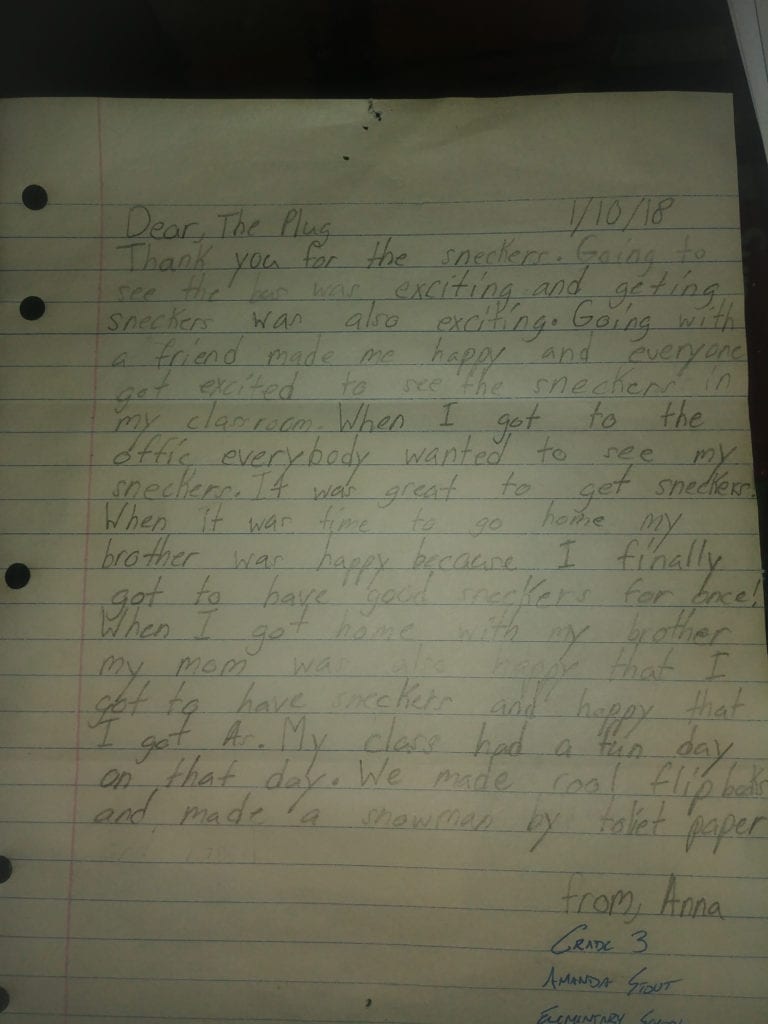 Dear, The Plug 1/10/18
Thank you for the sneckers. Going to
see the bus was exciting and geting
sneckers was also exciting. Going with
a friend made me happy and everyone
got excited to see the sneckers in
my classroom. When I got to the
offic everybody wanted to see my
sneckers. It was great to get sneckers.
When it was time to go home my
brother was happy because I finally
got to have good sneckers for once!
When I got home with my brother
my mom was also happy that I
got to have sneckers and happy that
I got As. My class had a fun day
on that day. We made cool flip books
and made a snowman by toliet paper
from, Anna
GRADE 3
AMANDA STOUT
ELEMENTARY SCHOOL